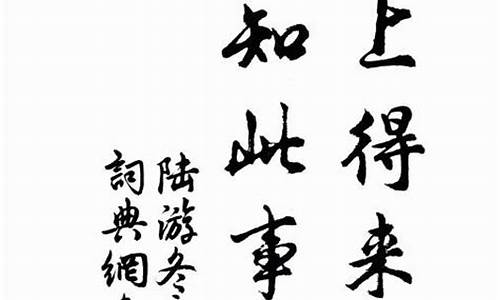 上得来
知此事
陆游冬
詞典網